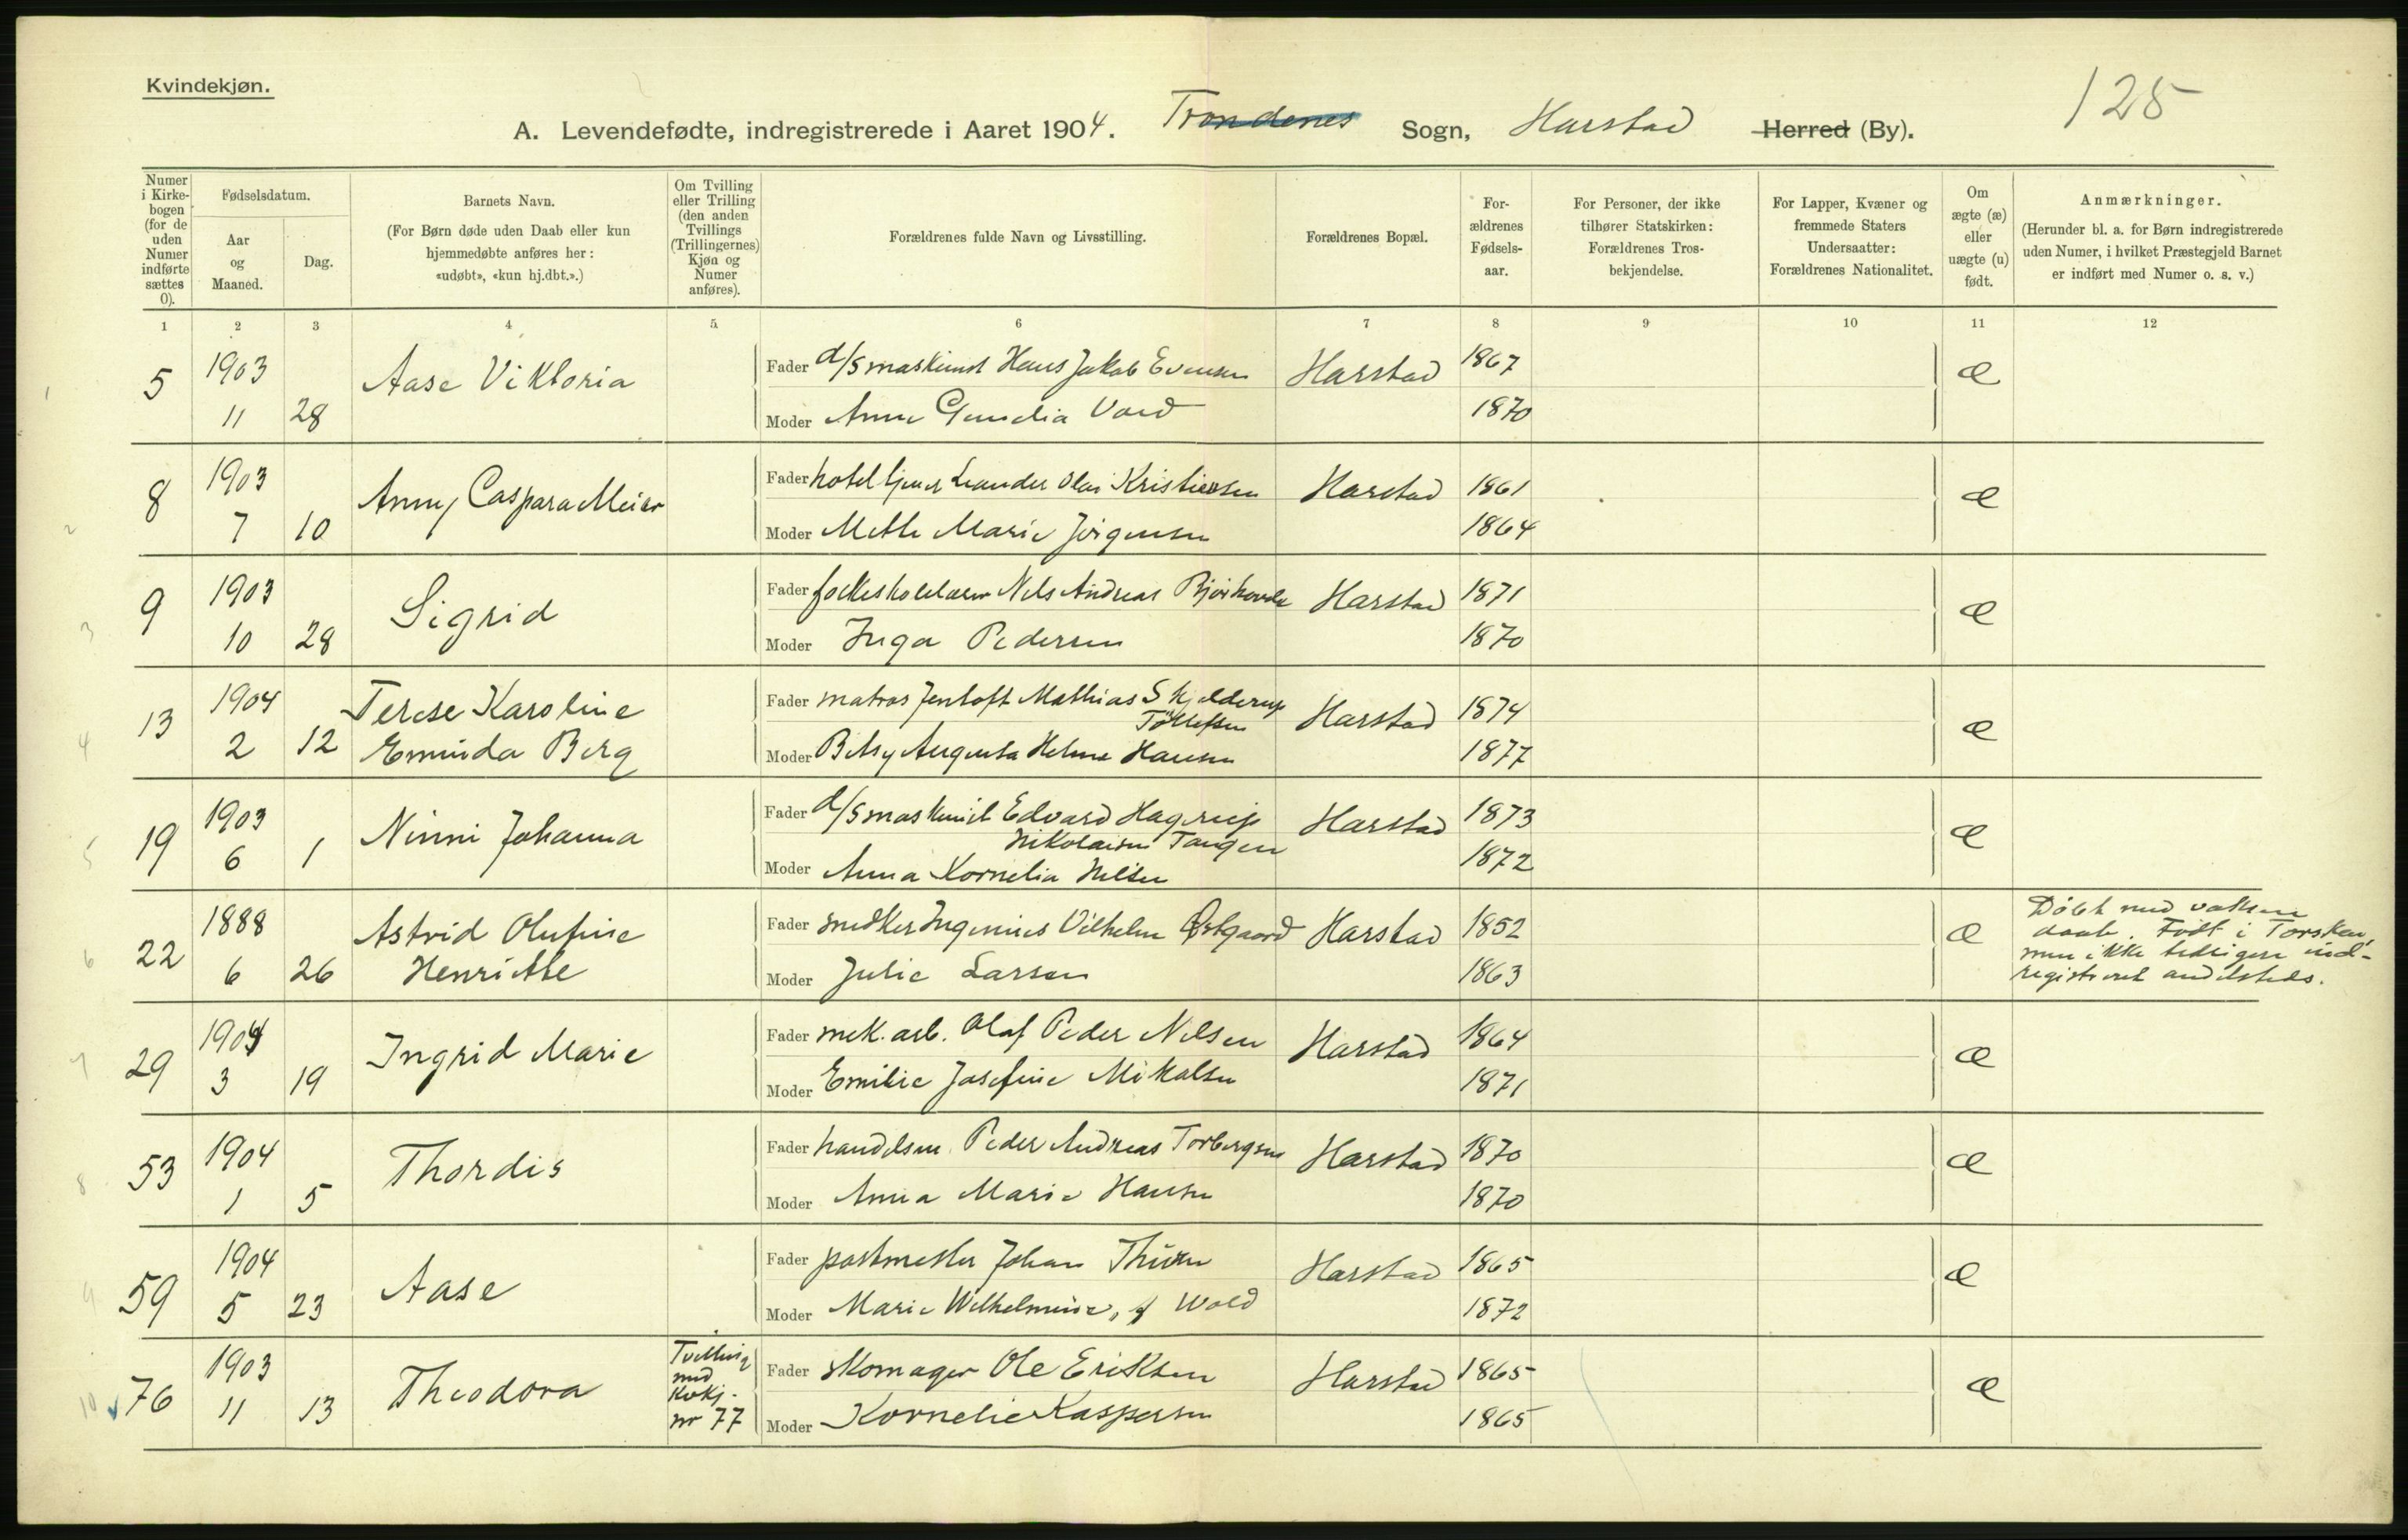 Kvindekjøn.
125
A. Levendefødte, indregistrerede i Aaret 1904. Trondenes Sogn, Harstad Herred (By).
Numer i Kirkebogen (for de uden Numer indførte sættes 0).
Fødselsdatum.
Aar og Maaned.
Dag.
Barnets Navn.
(For Børn døde uden Daab eller kun hjemmedøbte anføres her: «udøbt», «kun hj.dbt.».)
Om Tvilling eller Trilling (den anden Tvillings (Trillingernes) Kjøn og Numer anføres).
Forældrenes fulde Navn og Livsstilling.
Forældrenes Bopæl.
Forældrenes Fødselsaar.
For Personer, der ikke tilhører Statskirken: Forældrenes Trosbekjendelse.
For Lapper, Kvæner og fremmede Staters Undersaatter: Forældrenes Nationalitet.
Om ægte (æ) eller uægte (u) født.
Anmærkninger.
(Herunder bl. a. for Børn indregistrerede uden Numer, i hvilket Præstegjeld Barnet er indført med Numer o. s. v.)
1 2 3 4 5 6 7 8 9 10 11 12
1 5 1903 Aase Viktoria Fader d/s maskinist Hans Jakob Evensen Harstad 1867 æ
11 28 Moder Anna Vold 1870
2 8 1903 Anny Caspara Meier Fader hoteltjener Leander Olai Kristiensen Harstad 1861 æ
7 10 Moder Mette Marie Jørgensen 1864
3 9 1903 Sigrid Fader folkeskolelærer Nils Andreas Harstad 1871 æ
10 28 Moder Inga Pedersen 1870
4 13 1904 Terese Karoline Fader matros Jentoft Mathias Skjelderup Harstad 1874 æ
Tollefsen
2 12 Eminda Berg Moder Betsy Augusta Helene Hansen 1877
5 19 1903 Ninni Johanna Fader d/s maskinist Edvard Hagerup Harstad 1873 æ
Nikolaisen Tangen
6 1 Moder Anna Kornelia Nilsen 1872
6 22 1888 Astrid Olufine Fader snedker Ingenius Vilhelm Østgaard Harstad 1852 æ
6 26 Henriette Moder Julie Larsen 1863
Døbt med voksen
daab. Født i Torsken,
men ikke tidligere ind-
registreret andetsteds.
7 29 1904 Ingrid Marie Fader mek. arb. Olaf Peder Nilsen Harstad 1864 æ
3 19 Moder Emilie Josefine Mikalsen 1871
8 53 1904 Thordis Fader handelsm. Peder Andreas Torbergsen Harstad 1870 æ
1 5 Moder Anna Marie Hansen 1870
9 59 1904 Aase Fader postmester Johan Harstad 1865 æ
5 23 Moder Marie Wilhelmine, f Wold 1872
10 76 1903 Theodora Tvilling Fader skomager Ole Eriksen Harstad 1865 æ
med
Kvkj.
11 13 nr 77 Moder Kornelie Kaspersen 1865